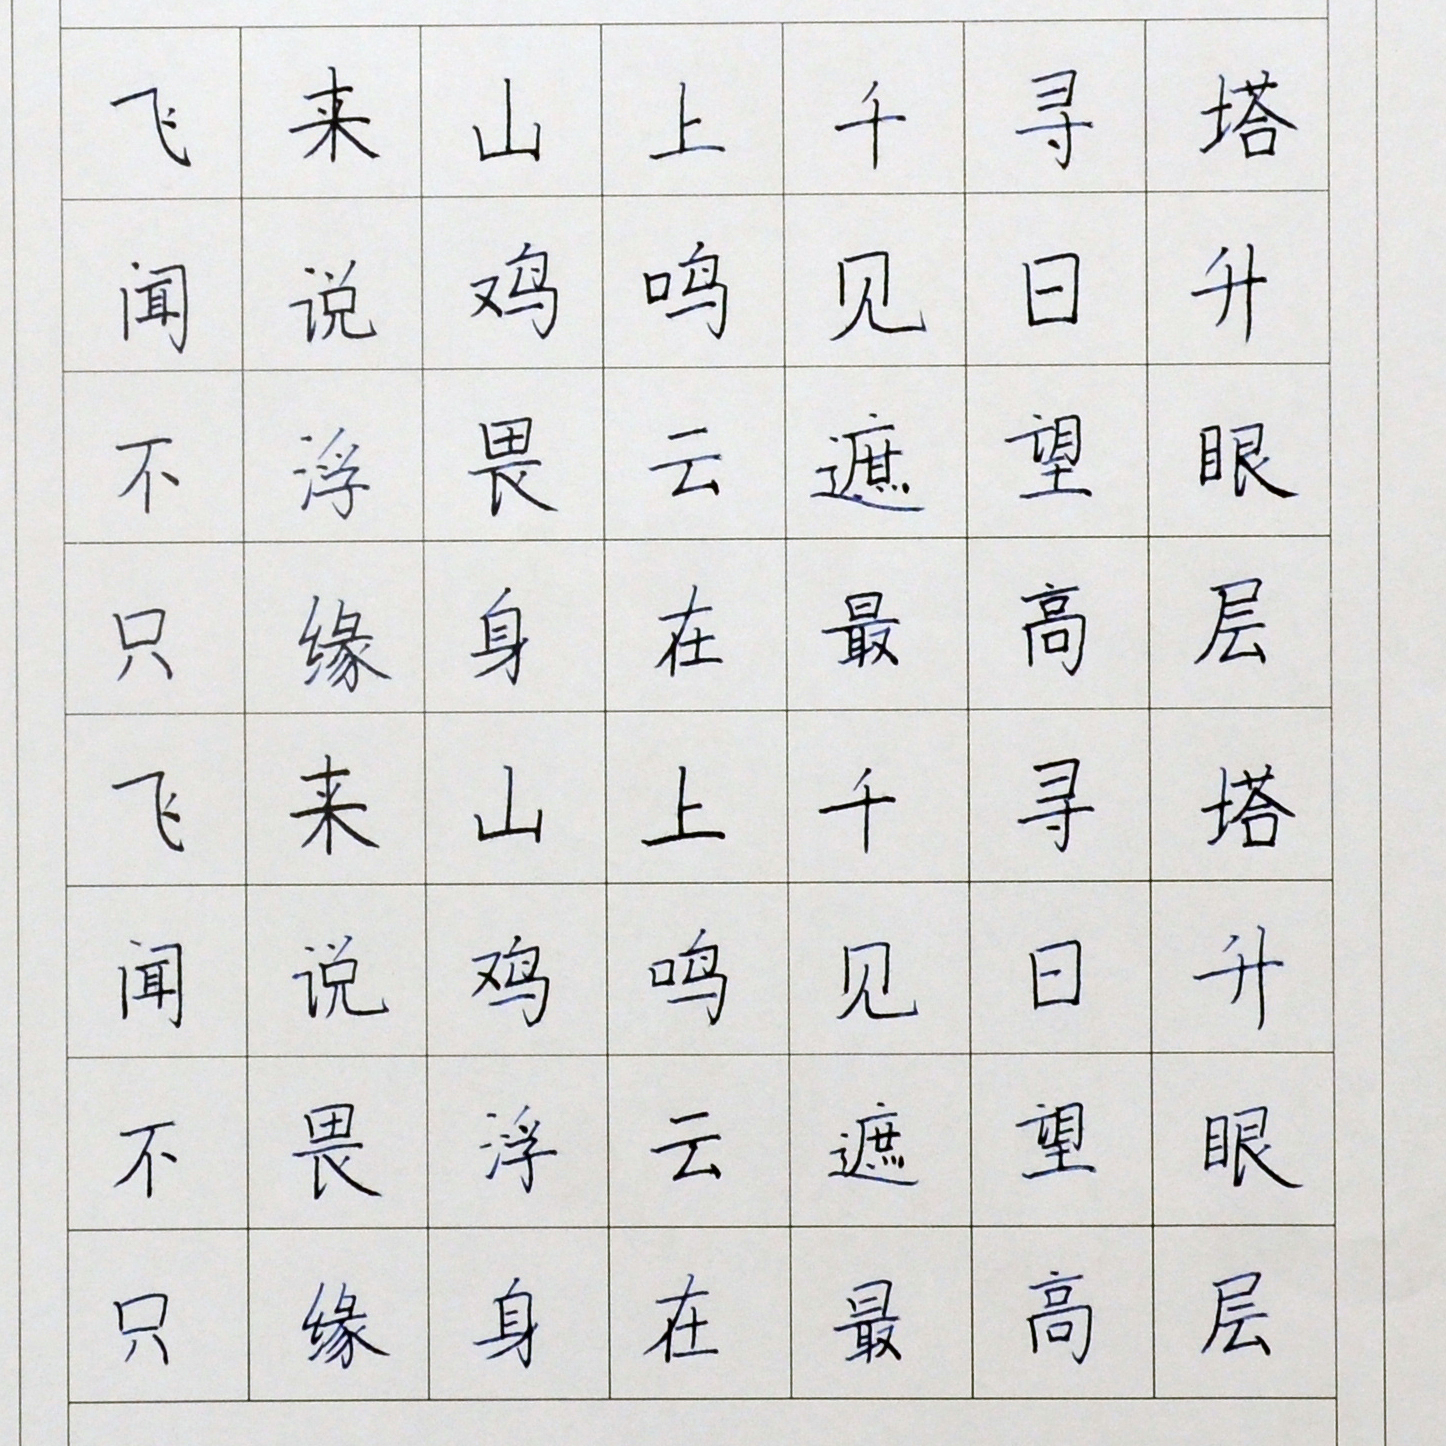 飞来山上千寻塔
闻说鸡鸣见日升
不浮畏云遮望眼
只缘身在最高层
飞来山上千寻塔
闻说鸡鸣见日升
不畏浮云遮望眼
只缘身在最高层